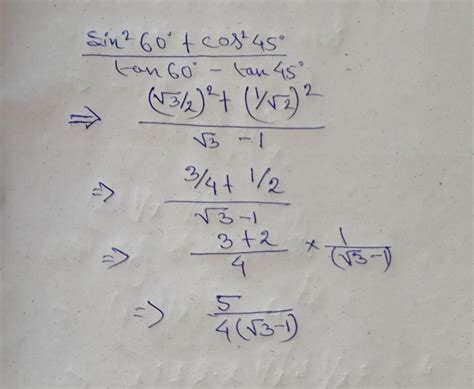 sin² 60° + cos² 45°
tan 60° - tan 45°
⇒ (√3/2)² + (1/√2)²
√3 - 1
⇒ 3/4 + 1/2
√3 - 1
⇒ 3+2 / 4 × 1 / (√3-1)
⇒ 5
4(√3-1)